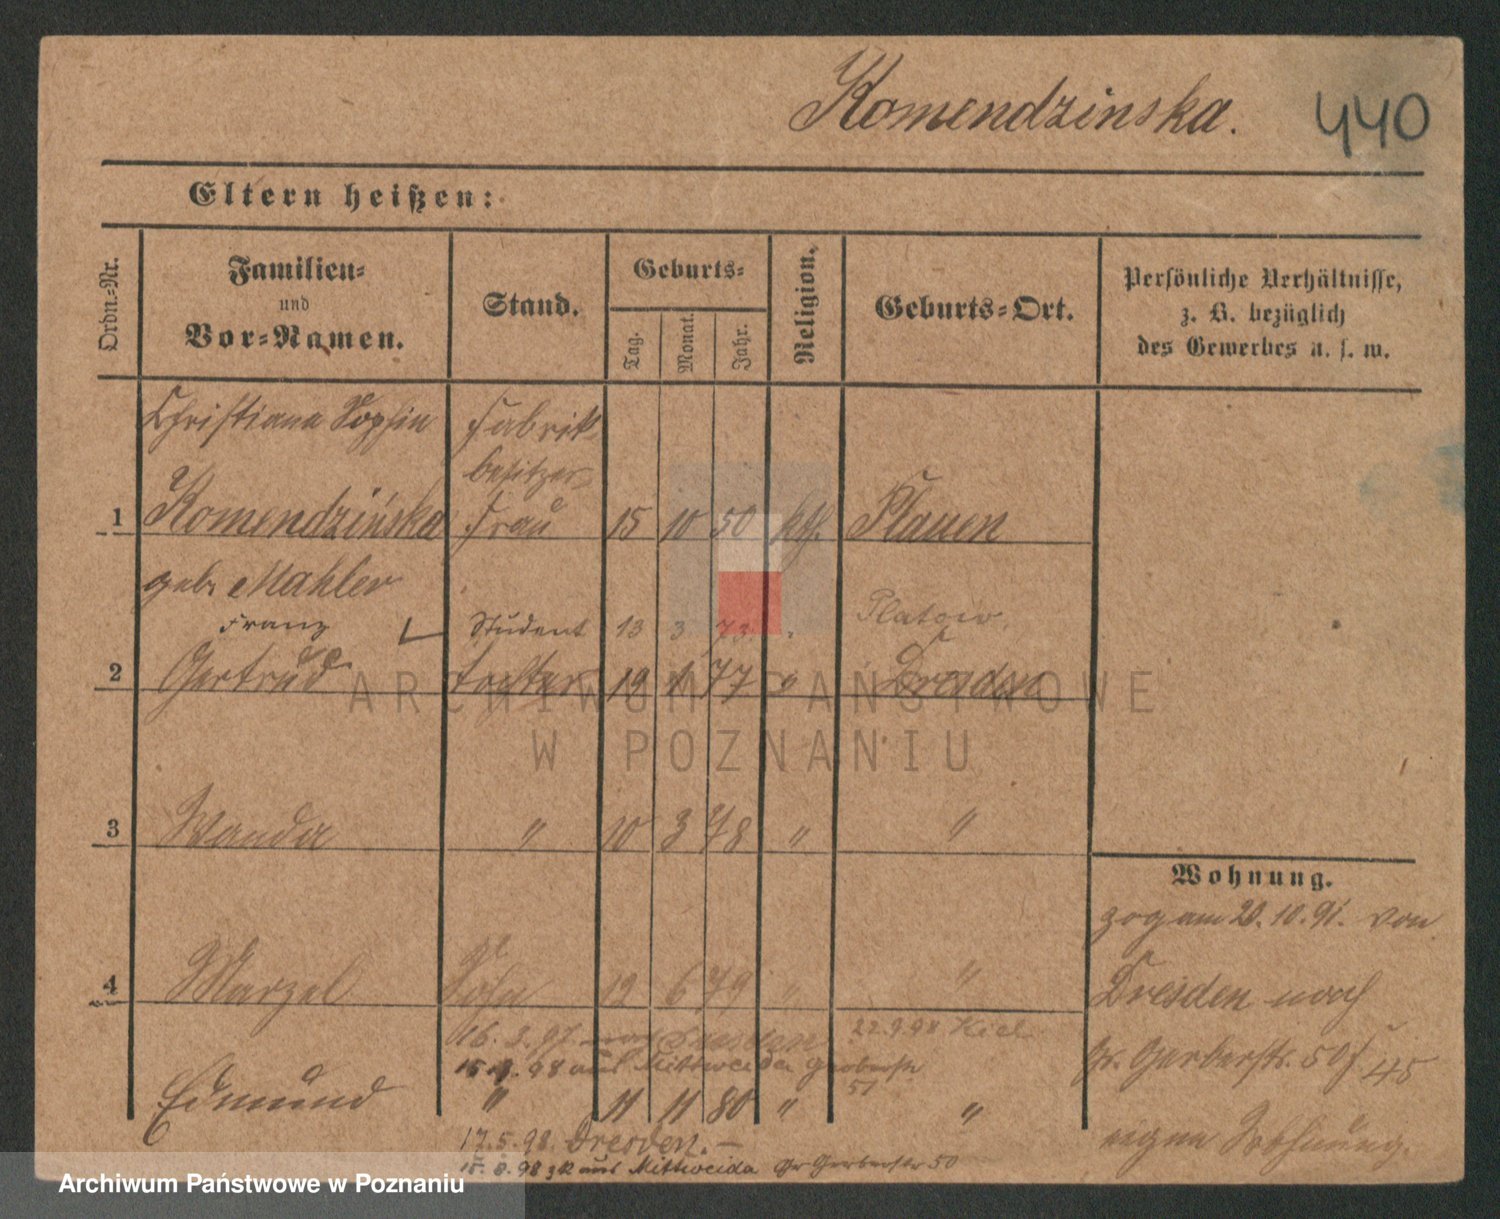 Komendzinska.
440
Eltern heißen:
Ordn.-Nr.
Familien-
und
Vor-Namen.
Stand.
Geburts-
Tag.
Monat.
Jahr.
Religion.
Geburts-Ort.
Persönliche Verhältnisse,
z. B. bezüglich
des Gewerbes u. s. w.
Christiana Sophia Fabrik-
besitzer
1 Komendzińska Frau 15 10 50 kth. Plauen
geb. Mahler
Franz Student 13 3 73 " Platow
2 Gertrud Tochter 19 1 77 " Dresden
ARCHIWUM PAŃSTWOWE
W POZNANIU
3 Wanda " 10 3 78 " "
Wohnung.
zog am 20.10.91. von
4 Marzel Sohn 12 6 79 " "
Dresden nach
16.3.97. nach Dresden 22.9.98 Kiel
Gr. Gerberstr. 50 f. 45
15.8.98 aus Mittweida Gerberstr
51
Edmund " 11 11 80 " "
eigne Wohnung.
17.5.98. Dresden. —
15.8.98 zk aus Mittweida Gr Gerberstr 50
Archiwum Państwowe w Poznaniu